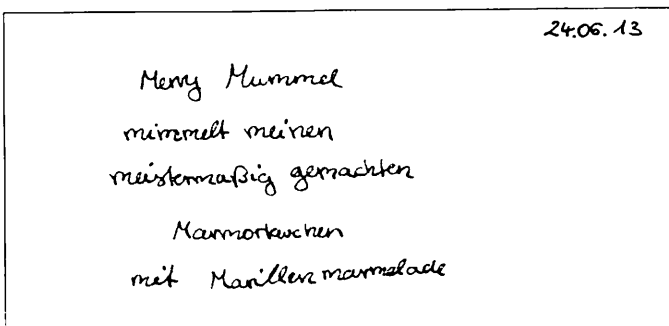 24.06.13
Merry Mummel
mimmelt meinen
meistermaßig gemachten
Marmorkuchen
mit Marillenmarmelade